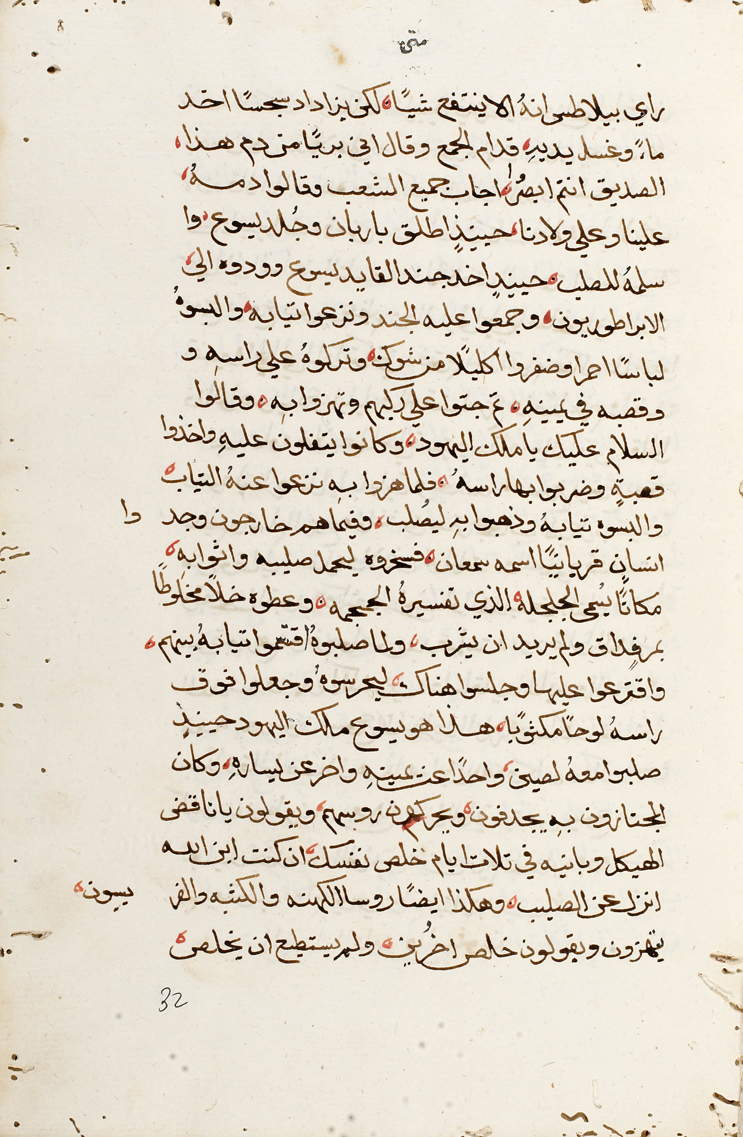 متي
راي بيلاطس انهُ لا ينتفع شيًا لكن يزاداد سجسًا اخد
ماءً وغسل يديهِ قدام الجمع وقال اني بريًا من دم هذا
الصديق انتم ابصرُ اجاب جميع الشعب وقالوا دمهُ
علينا وعلي ولادنا حينيذٍ اطلق باربان وجُلد يسوع وا
سلمهُ للصلب حينيدٍ اخد جند القايد يسوع وودوه الي
الابراطوريون وجمعوا عليه الجند ونزعوا تيابه والبسوهُ
لباسًا احمرا وضفروا اكليلًا من شوك وتركوهُ علي راسهِ و
وقصبه في يمينهِ تم جتوا علي ركبهم وتهزوا بهِ وقالوا
السلام عليك يا ملك اليهود وكانوا يتفلون عليهِ واخذوا
قصبةٍ وضربوا بها راسهُ فلما هزوا بهِ نزعوا عنهُ التياب
والبسوه تيابهُ وذهبوا بهِ ليُصلب وفيما هم خارجون وجد وا
انسانٍ قريانيًا اسمه سمعان فسخروه ليحمل صليبه واتوا بهِ
مكانًا يُسمي الجلجلة الذي تفسيرهُ الجمجمه وعطوه خلًا مخلوطًا
بمر فداق ولم يريد ان يشرب ولما صلبوهُ اقتسموا تيابهُ بينهم
واقترعوا عليها وجلسوا هناك ليحرسوهُ وجعلوا فوق
راسهُ لوحًا مكتوبًا هذا هو يسوع ملك اليهود حينيذٍ
صلبوا معهُ لصين واحدًا عن يمينهِ واخر عن يسارهِ وكان
المجتازون بهِ يجدفون ويحركون روسهم ويقولون يا ناقض
الهيكل وبانيه في تلات ايام خلص نفسك ان كنت ابن الله
انزل عن الصليب وهكذا ايضًا روسا الكهنه والكتبه والفر يسيون
يتهزون ويقولون خلص اخرُين ولم يستطيع ان يخلص
32